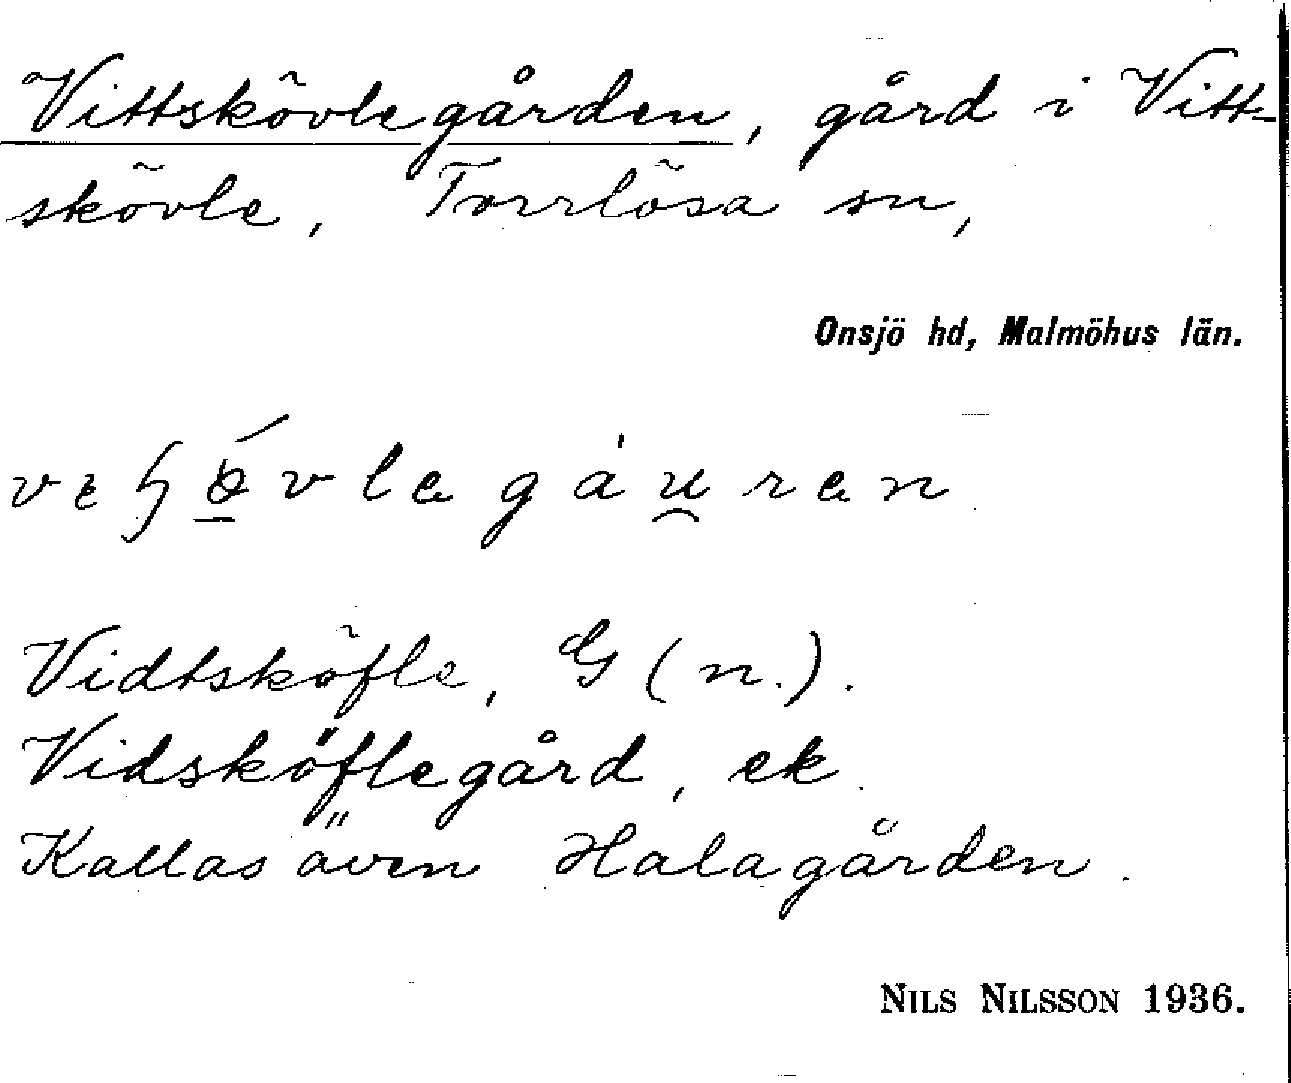 Vittskövlegården, gård i Vitt-
skövle, Torrlösa sn,
Onsjö hd, Malmöhus län.
Vidtsköfle, G (n.).
Vidsköflegård, ek.
Kallas även Halagården.
NILS NILSSON 1936.